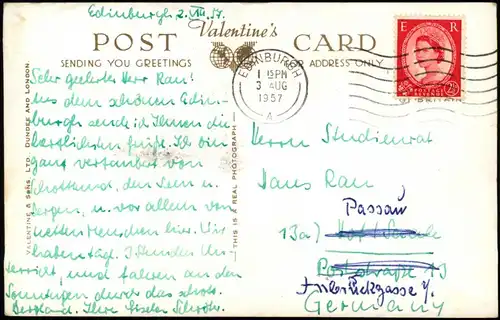 Edinburgh, 2. VIII. 57.
Valentine's
POST CARD
SENDING YOU GREETINGS
FOR ADDRESS ONLY
EDINBURGH
1 15 PM
3 AUG
1957
A
E R
POSTAGE REVENUE
2½D
Sehr geehrter Herr Rau!
Aus dem schönen Edin-
burgh sende ich Ihnen die
herzlichsten Grüße. Ich bin
ganz verzaubert von
Schottland, den Seen u.
Bergen, u. vor allem von
netten Menschen hier. Wir
haben tägl. 3 Stunden Un-
terricht, und fahren an den
Sonntagen durch das schott.
Bergland. Ihre Gisela
VALENTINE & SONS, LTD. DUNDEE AND LONDON.
THIS IS A REAL PHOTOGRAPH
Herrn Studienrat
Hans Rau
Passau
13a)
Poststraße 13
Germany